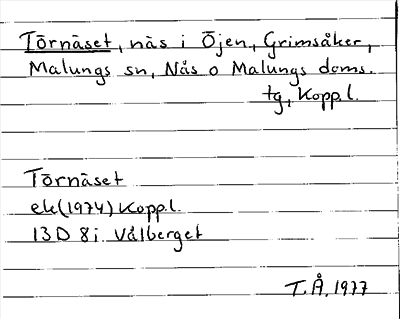 Törnäset, näs i Öjen, Grimsåker,
Malungs sn, Nås o Malungs doms.
tg, Kopp.l.
Törnäset
ek(1974) Kopp.l.
13D 8i Vålberget
T.Å. 1977